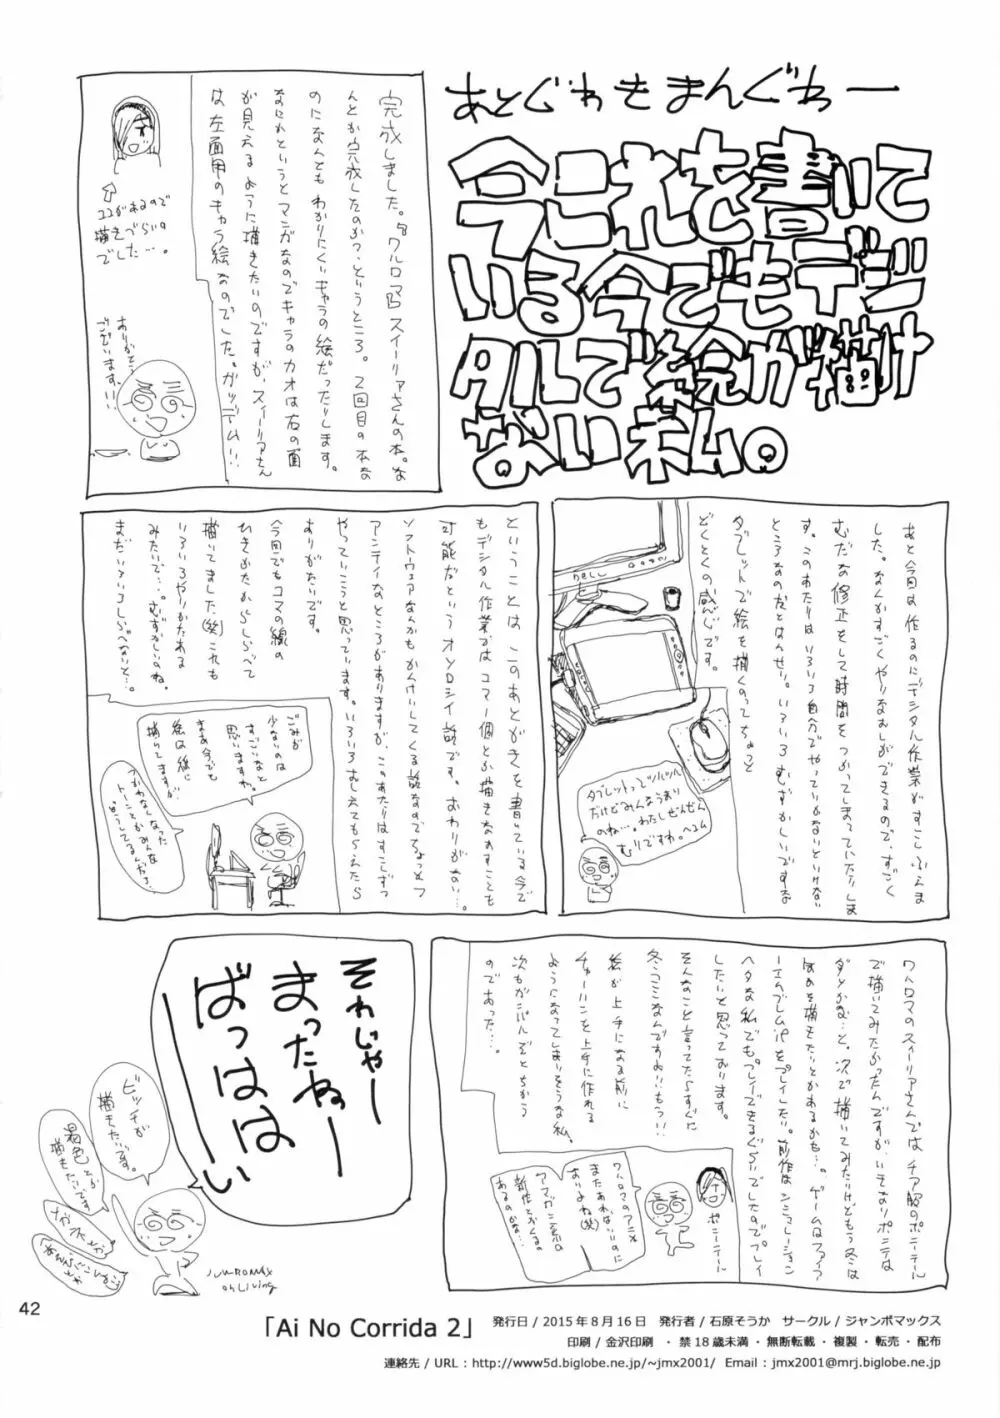 あとがきまんがー
今これを書いて
いる今でもデジ
タルで絵が描け
ない私。
完成しました。『ワルロマ』スイーリアさんの本。な
んとか完成したのかっ、というところ。2回目の本な
のになんともわかりにくいキャラの絵だったりします。
なにかというとマンガなのでキャラのカオは右の面
が見えるように描きたいのですが、スイーリアさん
は左面用のキャラ絵なのでした。ガッデム!!
ココがあるので
描きづらいの
でした…。
ありがとう
ございます!!
あと今回は作るのにデジタル作業がすこしふえま
した。なんかすごくやりなおしができるので、すごく
むだな修正をして時間をつかってしまっていたりしま
す。このあたりはいろいろ自分でやっていかないといけない
ところなのだとはんせい。いろいろむずかしいですな
タブレットで絵を描くのってちょっと
どくとくの感じです。
DELL
タブレットってツルツル
だけどみんなうまい
のね…。わたしぜんぜん
むりですわ。
ということは、このあとがきを書いている今で
もデジタル作業ではコマ一個とか描きなおすことも
可能だというオソロシイ話です。おわりがない…。
ソフトウェアなんかもかんけいしてくる話なのでなっとく
アンティなところがありますが、このあたりはすこしずつ
やっていこうと思っています。いろいろおしえてもらえたら
ありがたいです。
今回でもコマの線の
ひきかたからしらべて
描いてました(笑)これも
いろいろやりかたある
みたいで…。むずかしいのね。
まだいろいろしらべないと…。
ごみが
少ないのは
すごいなと
思いますわ。
まあ今でも
絵は紙に
描いてますが
つかわなくなった
トーンとかみんな
どうしてるんだろ?
ワルロマのスイーリアさんではチア服のポニーテール
で描いてみたかったんですが、いきなりポニテは
ダメかな…と。次で描いてみたいけどもう冬は
ヘタな私でも。プレイできるぐらいでしたのでプレイ
したいと思っております。
そんなこと言ってたらすぐに
冬コミなんですよ!!もっ!!
絵が上手になる前に
チャーハンを上手に作れる
ようになってしまいそうな私。
次もガンバルぞとちかう
のであった…。
ポニーテール
ワルロマのアニメ
またあればいいのに
それじゃー
まったねー
ばっははーい
ビッチが
描きたいです。
褐色とか
描きたいです
JUMBOMAX
oh Living
42
「Ai No Corrida 2」
発行日 / 2015年8月16日　発行者 / 石原そうか　サークル / ジャンボマックス
印刷 / 金沢印刷　・禁18歳未満・無断転載・複製・転売・配布
連絡先 / URL：http://www5d.biglobe.ne.jp/~jmx2001/　Email：jmx2001@mrj.biglobe.ne.jp